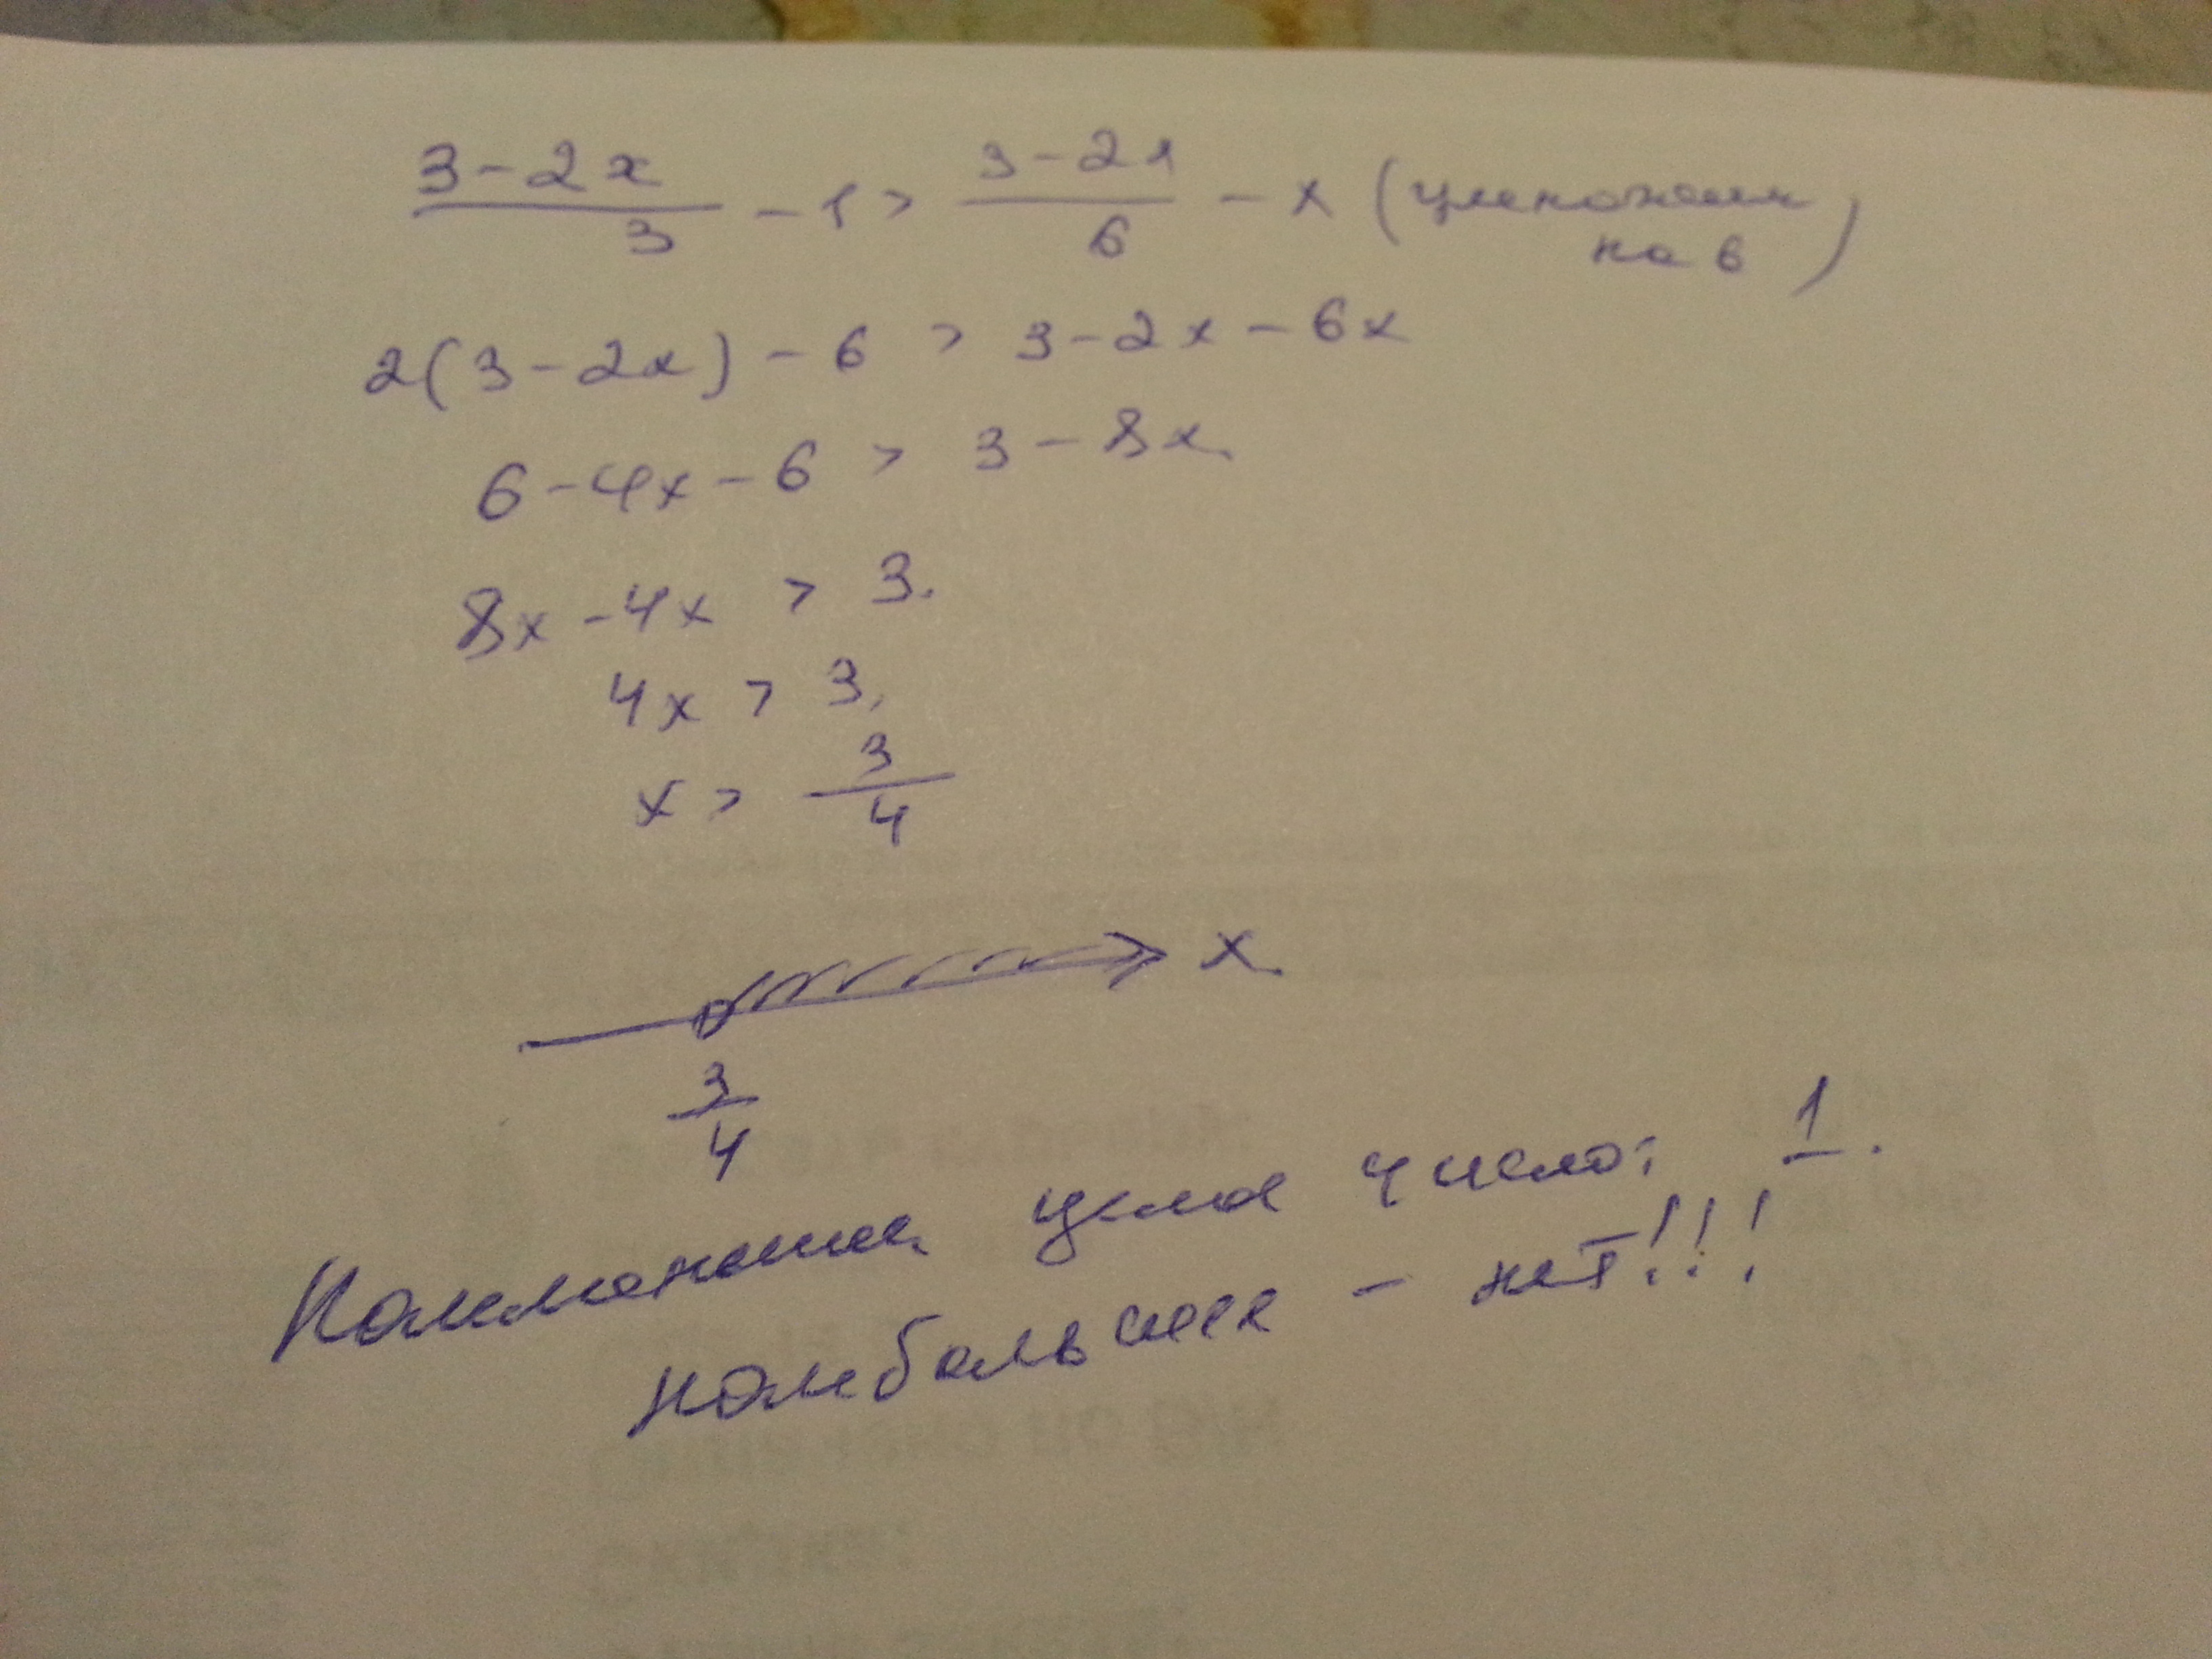 3-2x/3 - 1 > 3-2x/6 - x (умножаем
на 6)
2(3-2x) - 6 > 3-2x-6x
6-4x-6 > 3-8x.
8x-4x > 3.
4x > 3,
x > 3/4
x.
3/4
Наименьшее целое число: 1.
наибольшее - нет!!!